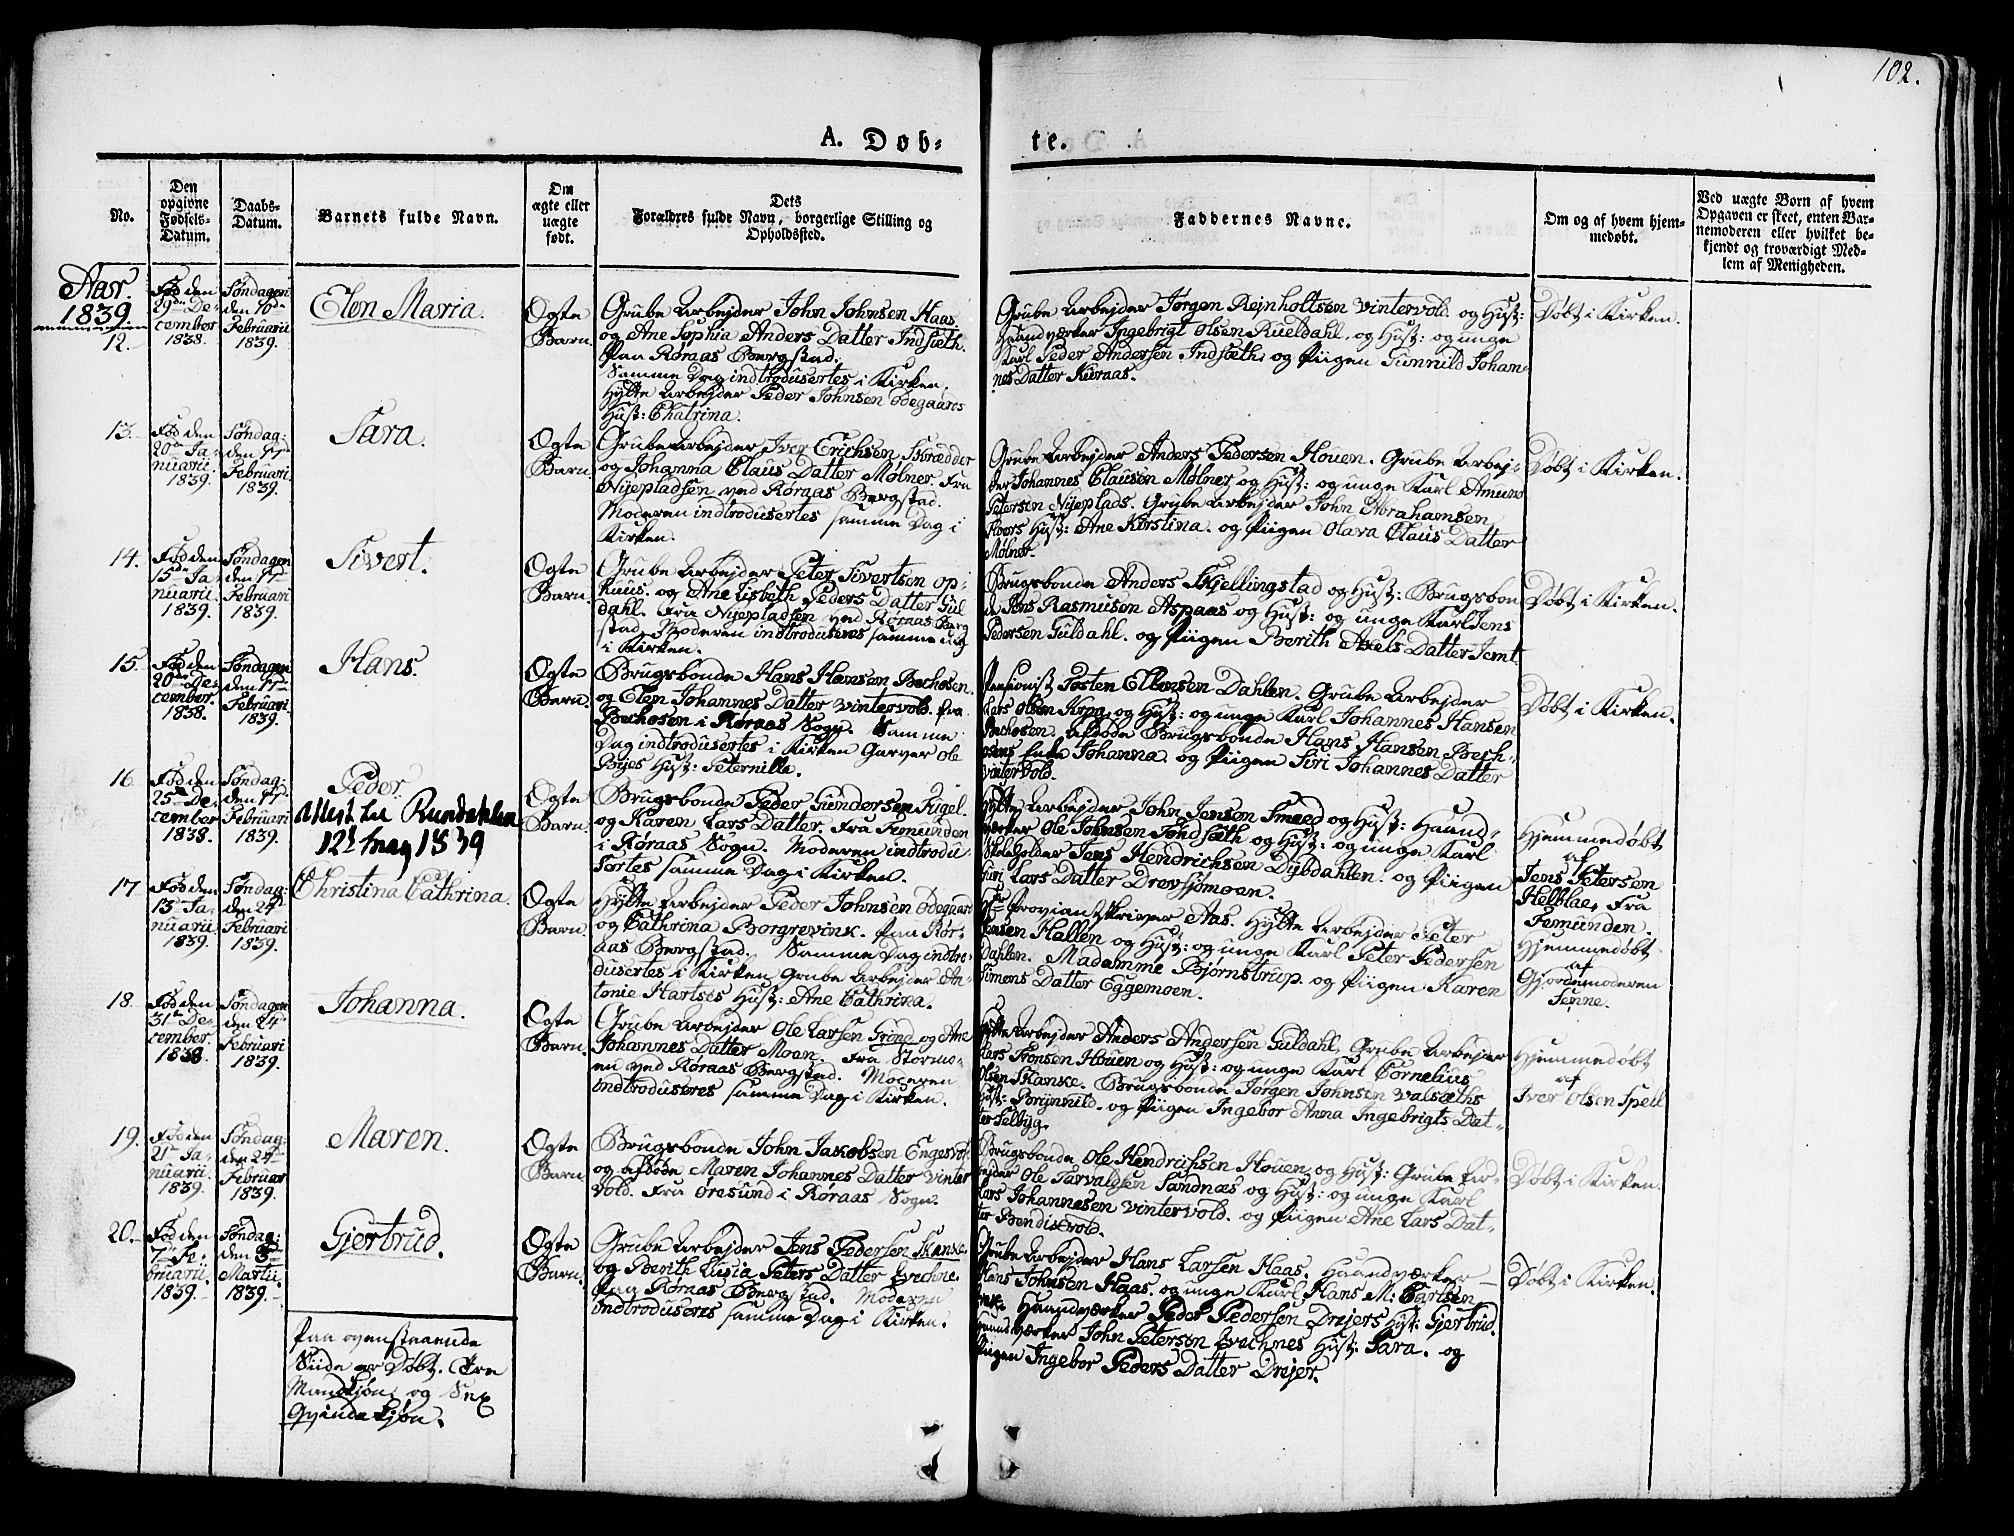 102.
A. Døb-
te.
No.
Den opgivne Fødsels-Datum.
Daabs-Datum.
Barnets fulde Navn.
Om ægte eller uægte født.
Dets Forældres fulde Navn, borgerlige Stilling og Opholdssted.
Faddernes Navne.
Om og af hvem hjem-medøbt.
Ved uægte Børn af hvem Opgaven er skeet, enten Bar-nemoderen eller hvilket be-kjendt og troværdigt Med-lem af Menigheden.
Aar.
1839.
12.
Fød den
29de De-
cember
1838.
Søndagen
den 10de
Februarii
1839.
Elen Maria.
Ægte
Barn.
Grube Arbejder John Johnsen Haas
og Ane Sophia Anders Datter Indsæth.
paa Røraas Bergstad.
Samme Dag indtrodusertes i Kirken,
Hytte Arbejder Peder Johnsen Ødegaards
Hust: Chatrina.
Grube Arbejder Jørgen Rejnholtsen Vintervold. og Hust:
Haandværker Ingebrigt Olsen Rueldahl. og Hust: og unge
Karl Peder Andersen Indsæth, og Piigen Gunnild Johan-
nes Datter Kuraas.
Døbt i Kirken.
13.
Fød den
20de Ja-
nuarii
1839.
Søndag:
den 17de
Februarii
1839.
Sara.
Ægte
Barn.
Grube Arbejder Iver Erichsen Skrædder
og Johanna Claus Datter Mølner. fra
Nyepladsen ved Røraas Bergstad.
Moderen indtrodusertes samme Dag i
Kirken.
Grube Arbejder Anders Pedersen Houen. Grube Arbej-
der Johannes Clausen Mølner og Hust: og unge Karl Amund
Petersen Nyeplads. Grube Arbejder John Abrahamsen
Hust: Ane Kirstina. og Piigen Olava Claus Datter
Mølner.
Døbt i Kirken.
14.
Fød den
15de Ja-
nuarii
1839.
Søndagen
den 17de
Februarii
1839.
Sivert.
Ægte
Barn.
Grube Arbejder Peter Sivertsen Op-
huus. og Ane Lisbeth Peders Datter Gul
dahl. Fra Nyepladsen ved Røraas Berg
stad, Moderen indtroduseres samme dag
i Kirken.
Brugsbonde Anders Skjellingstad og Hust: Brugsbon
de Jens Rasmusen Aspaas og Hust: og unge Karl Jens
Pedersen Guldahl. og Piigen Berith Axels Datter Jemt
Døbt i Kirken.
15.
Fød den
20de De-
cember.
1838.
Søndagen
den 17de
Februarii.
1839.
Hans.
Ægte
Barn.
Brugsbonde Hans Hansen Bechosen.
og Elen Johannes Datter Vintervold. fra
Bechosen i Røraas Sogn. Samme
Dag indtrodusertes i Kirken Garver Ole
Hust: Peternille.
Pensionist Posten Ellensen Dahlen. Grube Arbejder
Lars Olsen Krog. og Hust: og unge Karl Johannes Hansen
Bechosen. afdøde Brugsbonde Hans Hansen Bech-
osens Enke Johanna. og Piigen Siri Johannes Datter
Vintervold.
Døbt i Kirken.
16.
Fød den
25de De-
cember
1838.
Søndag:
den 17de
Februarii
1839.
Peder.
Attest 12t Maj 1839
Ægte
Barn.
Brugsbonde Peder Gundersen
og Karen Lars Datter. Fra Femunden
i Røraas Sogn. Moderen indtrodu-
sertes samme Dag i Kirken.
Hytte Arbejder John Jensen Smed og Hust: Haand-
værker Ole Johnsen Sindsæth og Hust: og unge Karl
Skoleholder Jens Hendrichsen Dybdahlen. og Piigen
Siri Lars Datter Drevsjømoen.
Hjemmedøbt
af
Jens Petersen
Helblae, Fra
Femunden.
17.
Fød den
13de Ja-
nuarii
1839.
Søndag:
den 24de
Februarii
1839.
Christina Cathrina.
Ægte
Barn.
Hytte Arbejder Peder Johnsen Ødegaard
og Cathrina Borgrevink. paa Rør-
aas Bergstad. Samme Dag indtro-
dusertes i Kirken Grube Arbejder An-
tonie Hartses Hust: Ane Cathrina.
Proviantskriver Aas. Hytte Arbejder Peter
Jensen Hallen og Hust: og unge Karl Peter Pedersen
Dahlen. Madamme Bjørnstrup. og Piigen Karen
Simens Datter Eggemoen.
Hjemmedøbt
af
Gjordemoderen
Tenne.
18.
Fød den
31de De-
cember.
1838.
Søndagen
den 24de
Februarii
1839.
Johanna.
Ægte
Barn.
Grube Arbejder Ole Larsen Grind og Ane
Johannes Datter Moan. Fra Stormo-
en ved Røraas Bergstad. Moderen
indtroduseres samme Dag i Kirken.
Hytte Arbejder Anders Andersen Guldahl, Grube Arbejder
Lars Tronsen Houen og Hust: og unge Karl Cornelius
Olsen Skanke. Brugsbonde Jørgen Johnsen Valsæths
Hust: Brynnild. og Piigen Ingebor Anna Ingebrigts Dat-
ter Selbyg.
Hjemmedøbt
af
Iver Olsen Speel
19.
Fød den
21de Ja-
nuarii
1839.
Søndag:
den 24de
Februar
1839.
Maren.
Ægte
Barn.
Brugsbonde John Jakobsen Engesvol
og afdøde Maren Johannes Datter Vinter
vold. Fra Øresund i Røraas Sogn.
Brugsbonde Ole Hendrichsen Houen, og Hust: Grube Ar-
bejder Ole Tarvaldsen Sandnæs og Hust: og unge Karl
Lars Johannesen Vintervold. og Piigen Ane Lars Dat-
ter Bendixvold.
Døbt i Kirken.
20.
Fød den
7de Fe-
bruarii.
1839.
Søndag:
den 3de
Martii.
1839.
Gjertrud.
Ægte
Barn.
Grube Arbejder Jens Pedersen Skanke.
og Berith Lusia Peters Datter Evechne.
paa Røraas Bergstad. Moderen
indtroduseres samme Dag i Kirken.
Grube Arbejder Hans Larsen Haas. Haandværker
Hans Johnsen Haas. og unge Karl Hans M: Carlsen
Haandværker Peder Pedersen Drejers Hust: Gjertrud.
Haandværker John Petersen Evechnes Hust: Sara. og
Piigen Ingebor Peders Datter Drejer.
Døbt i Kirken.
Paa ovenstaaende
Side er Døbt. Tre
Mandkjøn, og Sex
Qvindekjøn.